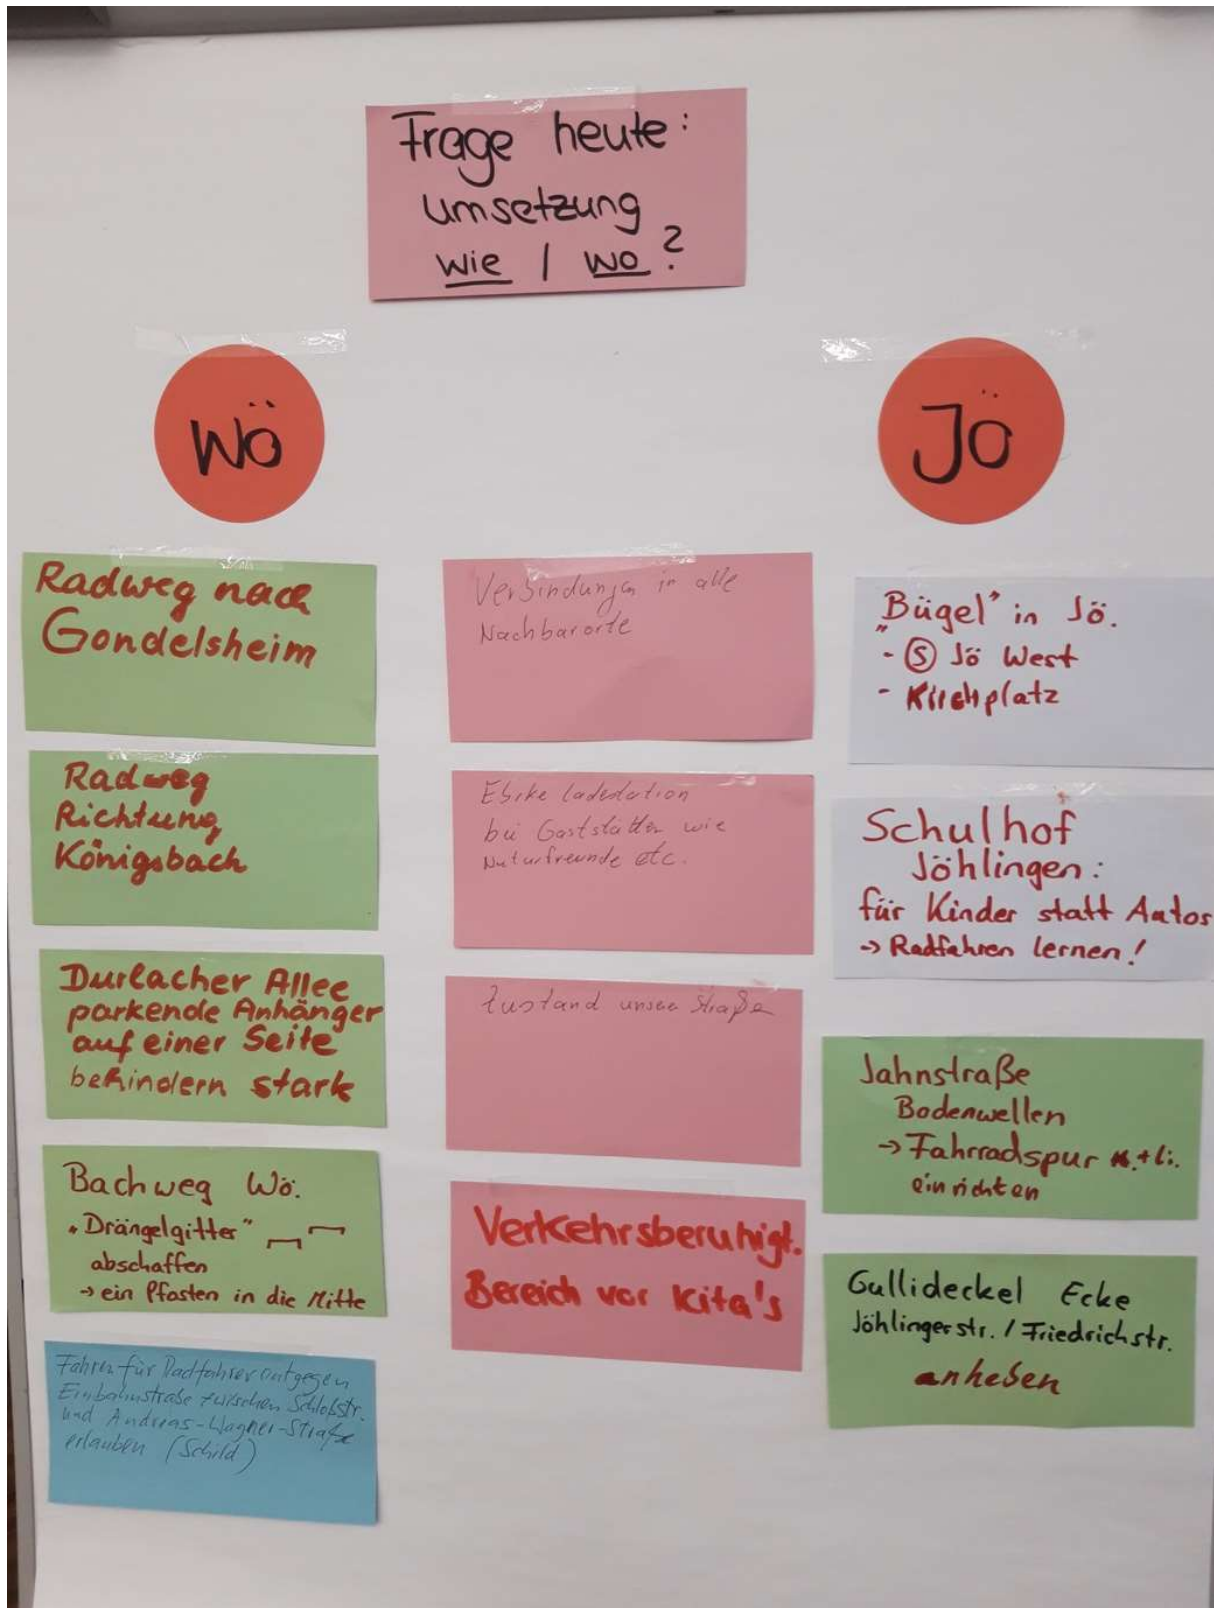 Frage heute:
Umsetzung
wie / wo?
Wö
Jö
Radweg nach
Gondelsheim
Radweg
Richtung
Königsbach
Durlacher Allee
parkende Anhänger
auf einer Seite
behindern stark
Bachweg Wö.
"Drängelgitter"
abschaffen
→ ein Pfosten in die Mitte
Fahren für Radfahrer entgegen
Einbahnstraße zwischen Schloßstr.
und Andreas-Wagner-Straße
erlauben (Schild)
Verbindungen in alle
Nachbarorte
Ebike ladestation
bei Gaststätten wie
Naturfreunde etc.
Zustand unser Straße
Verkehrsberuhigt.
Bereich vor Kita's
„Bügel" in Jö.
- Ⓢ Jö West
- Kirchplatz
Schulhof
Jöhlingen:
für Kinder statt Autos
→ Radfahren lernen!
Jahnstraße
Bodenwellen
→ Fahrradspur +li.
einrichten
Gullideckel Ecke
Jöhlingerstr. / Friedrichstr.
anheben